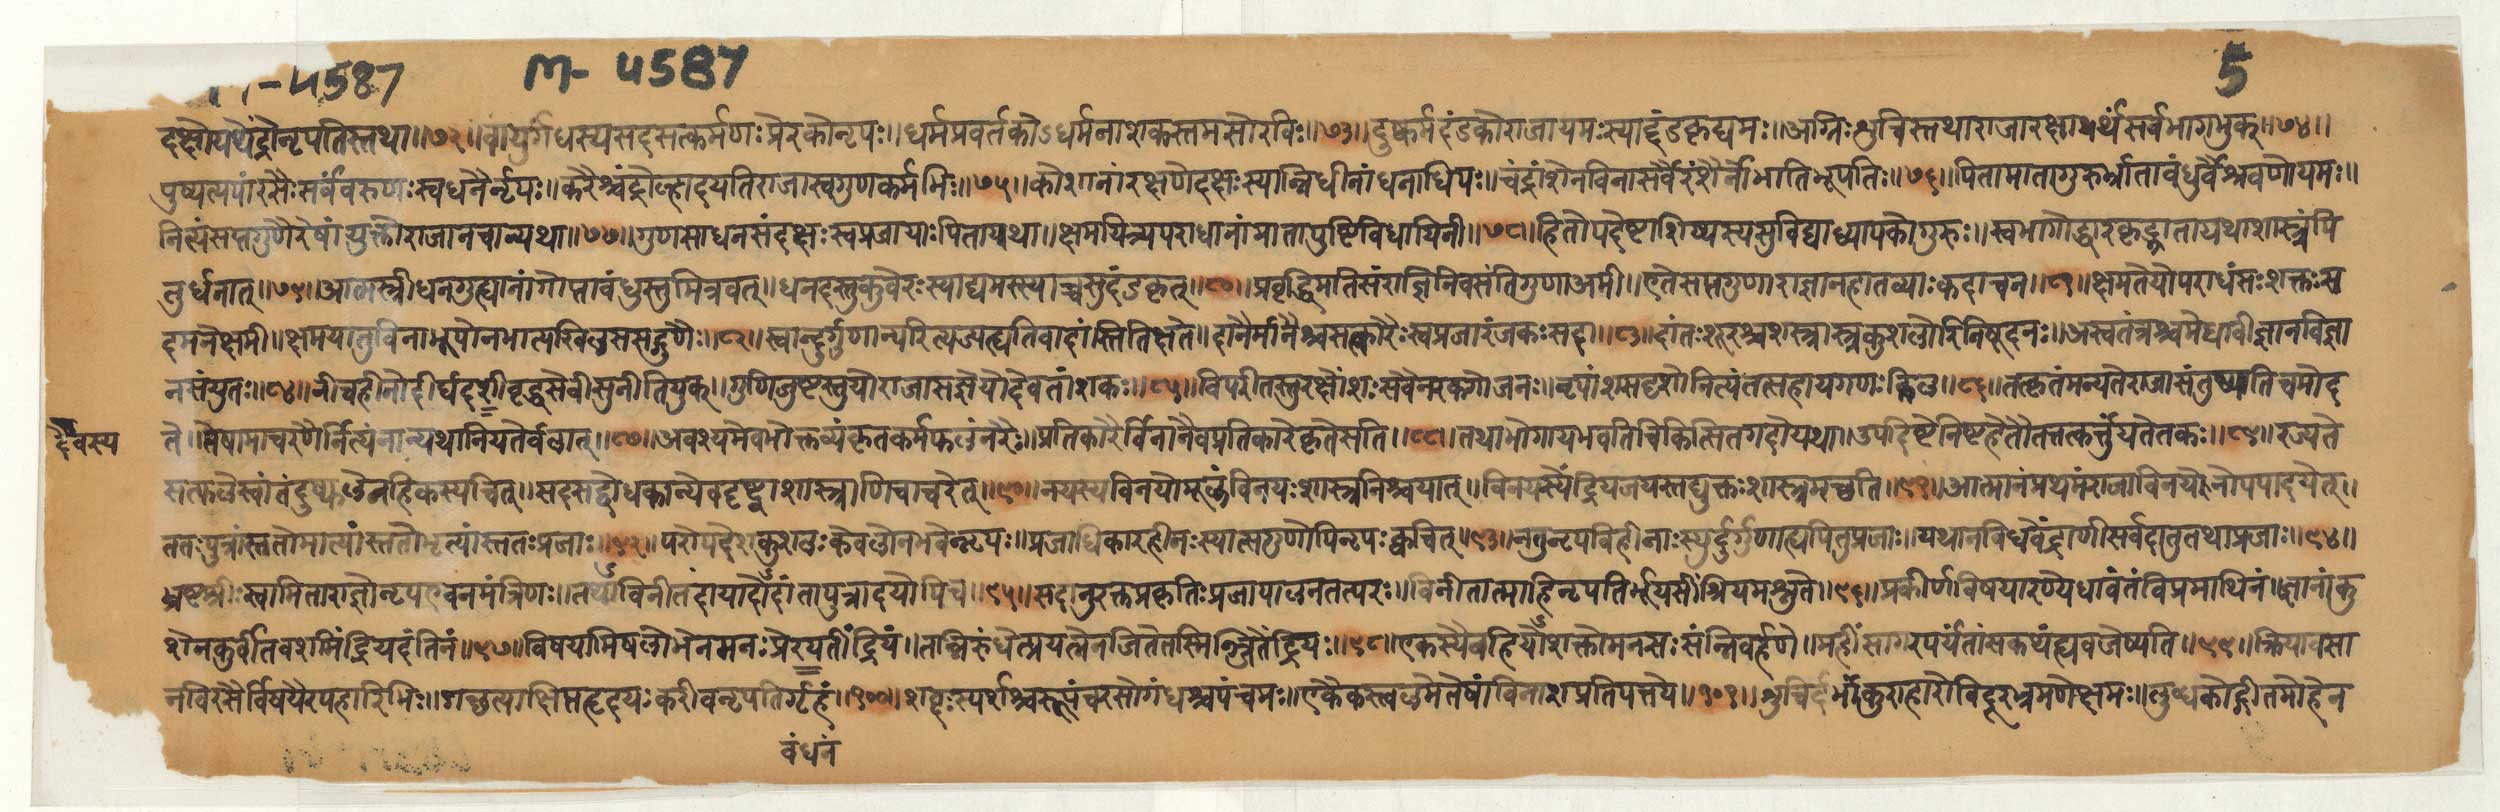 M-4587 M-4587 5
दक्षोयथेंद्रोनृपतिस्तथा॥७२॥वायुर्गंधस्यसदसत्कर्मणःप्रेरकोनृपः॥धर्मप्रवर्तकोऽधर्मनाशकस्तमसोरविः॥७३॥दुष्कर्मदंडकोराजायमःस्याद्दंडकृद्यमः॥अग्निःशुचिस्तथाराजारक्षार्थंसर्वभागभुक्॥७४॥
पुष्यत्यपांरसैःसर्वंवरुणःस्वधनैर्नृपः॥करैश्चंद्रोल्हादयतिराजास्वगुणकर्मभिः॥७५॥कोशानांरक्षणेदक्षःस्यान्निधीनांधनाधिपः॥चंद्रांशेनविनासर्वैरंशैर्नोभातिभूपतिः॥७६॥पितामातागुरुर्भ्राताबंधुर्वैश्रवणोयमः॥
नित्यंसप्तगुणैरेषांयुक्तोराजानचान्यथा॥७७॥गुणसाधनसंदक्षःस्वप्रजायाःपितायथा॥क्षमयित्र्यपराधानांमातापुष्टिविधायिनी॥७८॥हितोपदेष्टाशिष्यस्यसुविद्याध्यापकोगुरुः॥स्वभागोद्धारकृद्भ्रातायथाशास्त्रंपि
तुर्धनात्॥७९॥आत्मस्त्रीधनगुह्यानांगोप्ताबंधुस्तुमित्रवत्॥धनदस्तुकुबेरःस्याद्यमस्स्याच्चसुदंडकृत्॥८०॥प्रवृद्धिमतिसंराज्ञिनिवसंतिगुणाअमी॥एतेसप्तगुणाराज्ञानहातव्याःकदाचन॥८१॥क्षमतेयोपराधंसःशक्तःस
दमनेक्षमी॥क्षमयातुविनाभूपोनभात्यखिलससद्गुणैः॥८२॥स्वान्दुर्गुणान्परित्यज्यत्ह्यतिवादांस्तितिक्षते॥दानैर्मानैश्चसत्कारैःस्वप्रजारंजकःसदा॥८३॥दांतःशूरश्चशस्त्रास्त्रकुशलोरिनिषूदनः॥अस्वतंत्रश्चमेधावीज्ञानविज्ञा
नसंयुतः॥८४॥नीचहीनोदीर्घदर्शीवृद्धसेवीसुनीतियुक्॥गुणिजुष्टस्तुयोराजासज्ञेयोदेवतांशकः॥८५॥विपरीतस्तुरक्षोंशःसवैनरकगोजनः॥नृपांशसदृशोनित्यंतत्सहायगणःकिल॥८६॥तत्कृतंमन्यतेराजासंतुष्यतिचमोद
दैवस्य ते॥तेषामाचरणैर्नित्यंनान्यथानियतेर्बलात्॥८७॥अवश्यमेवभोक्तव्यंकृतकर्मफलंनरैः॥प्रतिकारैर्विनानैवप्रतिकारेकृतेसति॥८८॥तथाभोगायभवतिचिकित्सितगदोयथा॥उपदिष्टेनिष्टहेतौतत्तत्कर्त्तुंयतेतकः॥८९॥रज्यते
सत्फलेस्वांतंदुष्फलेनहिकस्यचित्॥सदसद्बोधकान्येवदृष्ट्वाशास्त्राणिचाचरेत्॥९०॥नयस्यविनयोमूलंविनयःशास्त्रनिश्चयात्॥विनयस्येंद्रियजयस्तद्युक्तःशास्त्रमृच्छति॥९१॥आत्मानंप्रथमंराजाविनयेनोपपादयेत्॥
ततःपुत्रांस्ततोमात्यांस्ततोभृत्यांस्ततःप्रजाः॥९२॥परोपदेशकुशलःकेवलोनभवेन्नृपः॥प्रजाधिकारहीनःस्यात्सगुणोपिनृपःक्वचित्॥९३॥नतुनृपविहीनाःस्युर्दुर्गुणात्ह्यपितुप्रजाः॥यथानविधवेंद्राणीसर्वदातुतथाप्रजाः॥९४॥
भ्रष्टश्रीःस्वामिताराज्ञोनृपएवनमंत्रिणः॥तथाविनीतदायादोदांतापुत्रादयोपिच॥९५॥सदानुरक्तप्रकृतिःप्रजापालनतत्परः॥विनीतात्माहिनृपतिर्भूयसींश्रियमश्नुते॥९६॥प्रकीर्णविषयारण्येधावंतंविप्रमाथिनं॥ज्ञानांकु
शेनकुर्वीतवशमिंद्रियदंतिनं॥९७॥विषयामिषलोभेनमनःप्रेरयतींद्रियं॥तन्निरुंधेत्प्रयत्नेनजितेतस्मिञ्जितेंद्रियः॥९८॥एकस्यैवहियोशक्तोमनसःसंन्निबर्हणे॥महींसागरपर्यंतांसकथंह्यवजेष्यति॥९९॥क्रियावसा
नविरसैर्विषयैरपहारिभिः॥गच्छत्याक्षिप्तहृदयःकरीवनृपतिर्गृहं॥१००॥शब्दःस्पर्शश्चरूपंचरसोगंधश्चपंचमः॥एकैकस्त्वलमेतेषांविनाशप्रतिपत्तये॥१०१॥शुचिर्दर्भांकुराहारोविदूरभ्रमणेक्षमः॥लुब्धकोद्गीतमोहेन
बंधनं